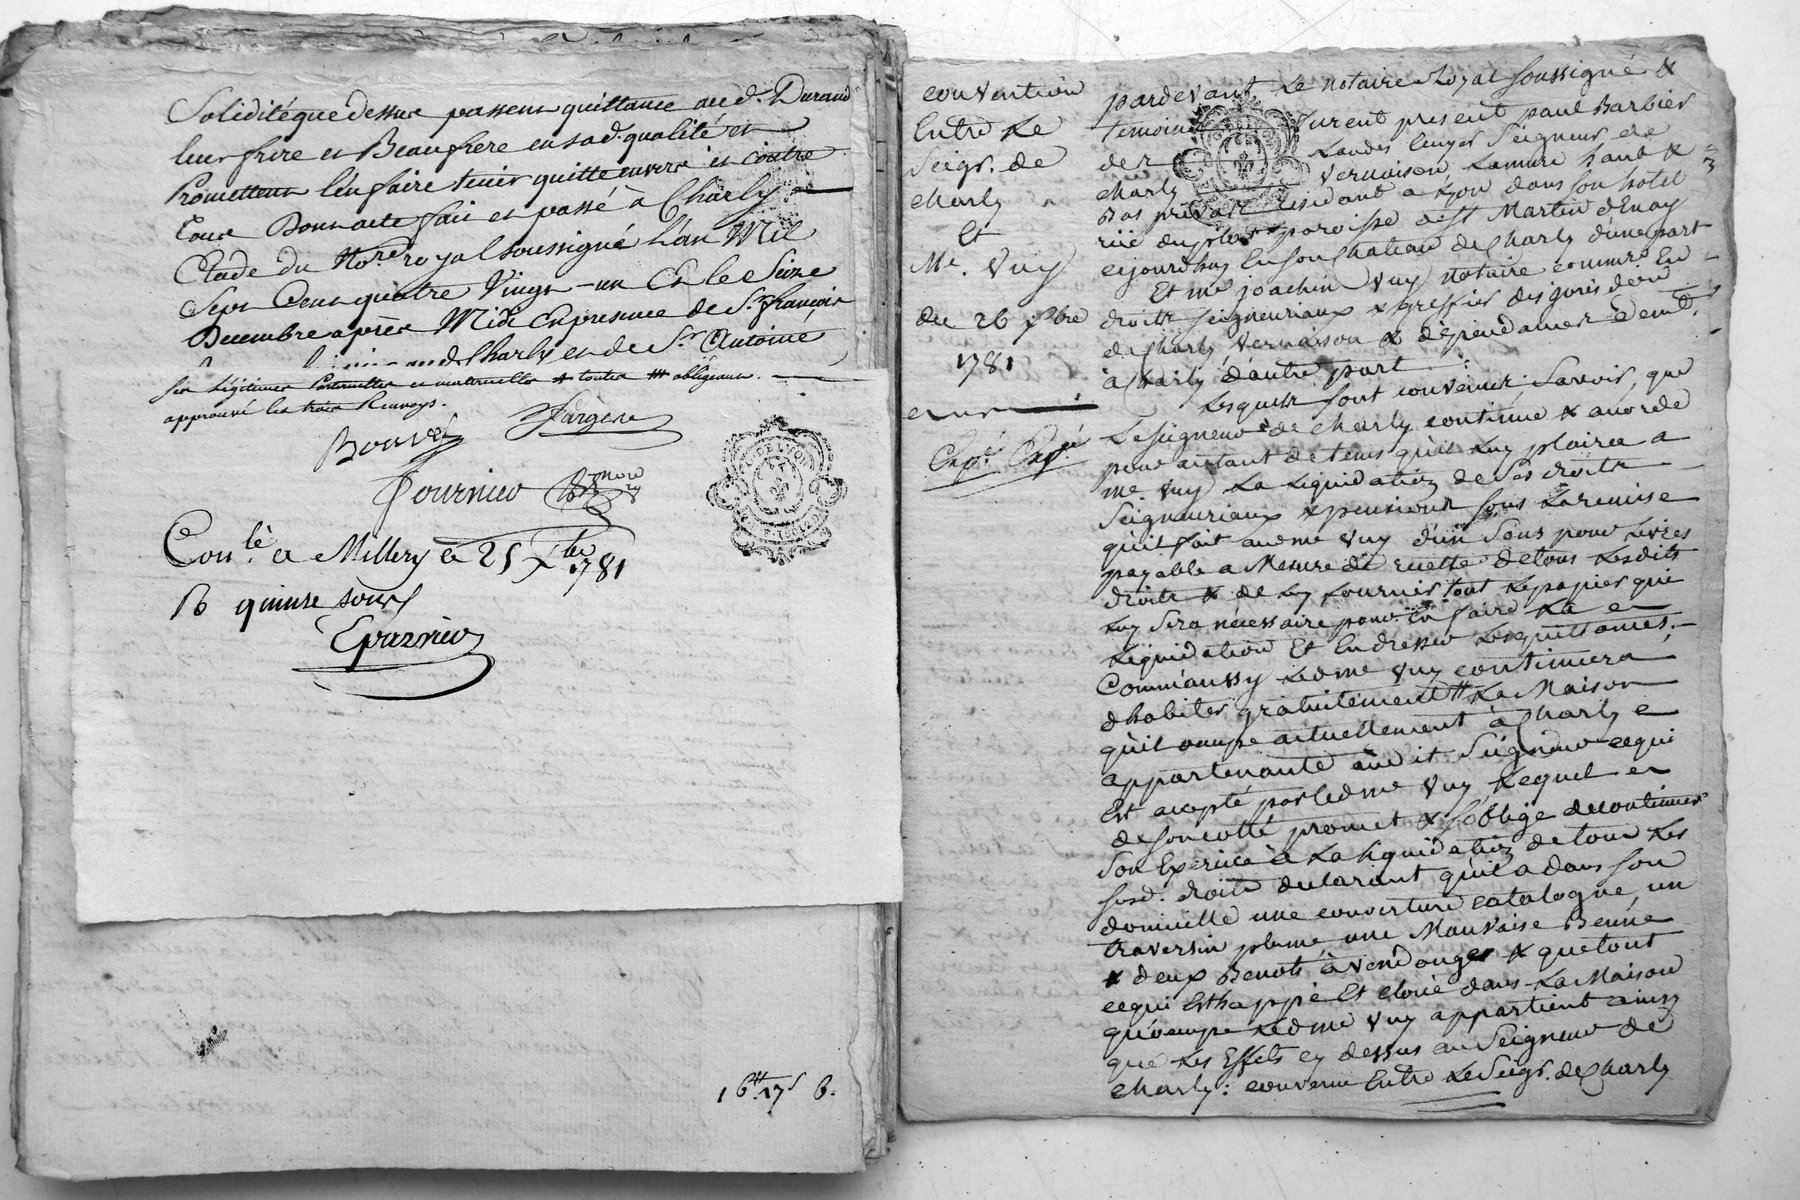 Soliditéque dessus passent quittance aud. Durand
leur frere et Beaufrere en sad. qualité et
Promettent l'en faire tenir quitte envers et contre
Tous Dont acte fait et passé à Charly
Etude du Nore. royal soussigné L'an Mil
Sept Cent quatre Vingt-un Et le Seize
Decembre après Midi En presence de Sr. françois
de Charly et de Sr. Antoine
ses légitimes Paternelles et maternelles toutes obligeant.
approuvé les trois Renvoys.
Fargere
Fournier
Conlé. à Millery le 25 Xbre 1781
R quinze sous
1 6tt 17s 6.
convention
Entre Le
Seigr. de
Charly
Et
Me. Vuy
du 26 xbre
1781
Expé. Expé
pardevant Le notaire Royal soussigné &
temoins furent présent paul Barbier
des Landes Ecuyer Seigneur de
Charly Vernaison, Lamure haut &
Bas privas Résidant a Lyon dans son hotel
rüe du plat paroisse de St Martin d'Enay
cejourdhuy En son Chateau de Charly d'une part
Et me joachin Vuy notaire commis En
droits seigneuriaux & greffier des jurisdon
de Charly, Vernaison & dépendances demt.
à Charly d'autre part
Lesquels sont convenus Savoir, que
Le seigneur de Charly continue & acorde
pour autant de tems qu'il Luy plaira a
me. Vuy La Liquidation de Ses droits
Seigneuriaux & pensions sous La remise
qu'il fait aud me Vuy d'un Sous pour Livres
payable a Mesure de recette de tous Lesdits
droits & de Luy fournir tout Le papier qui
Luy Sera nécessaire pour En faire La
Liquidation Et En dresser Les quittances,
Comm'aussy Led me Vuy continuera
d'habiter gratuitement tt La Maison
qu'il ocupe actuellement à Charly
appartenante audit Seigneur cequi
Est accepté par led me Vuy Lequel
de son cotté promet & s'oblige de continuer
Son Exercice à La liquidation de tous Les
susd. droits declarant qu'il a dans son
domicille une couverture catalogne, un
traversin plume, une Mauvaise Benne
& deux Benots à vendanges & que tout
cequi Est happé Et cloué dans La Maison
qu'ocupe Led me Vuy appartient ainsy
que Les Effets cy dessus au Seigneur de
Charly: convenu Entre Le Seigr. de Charly